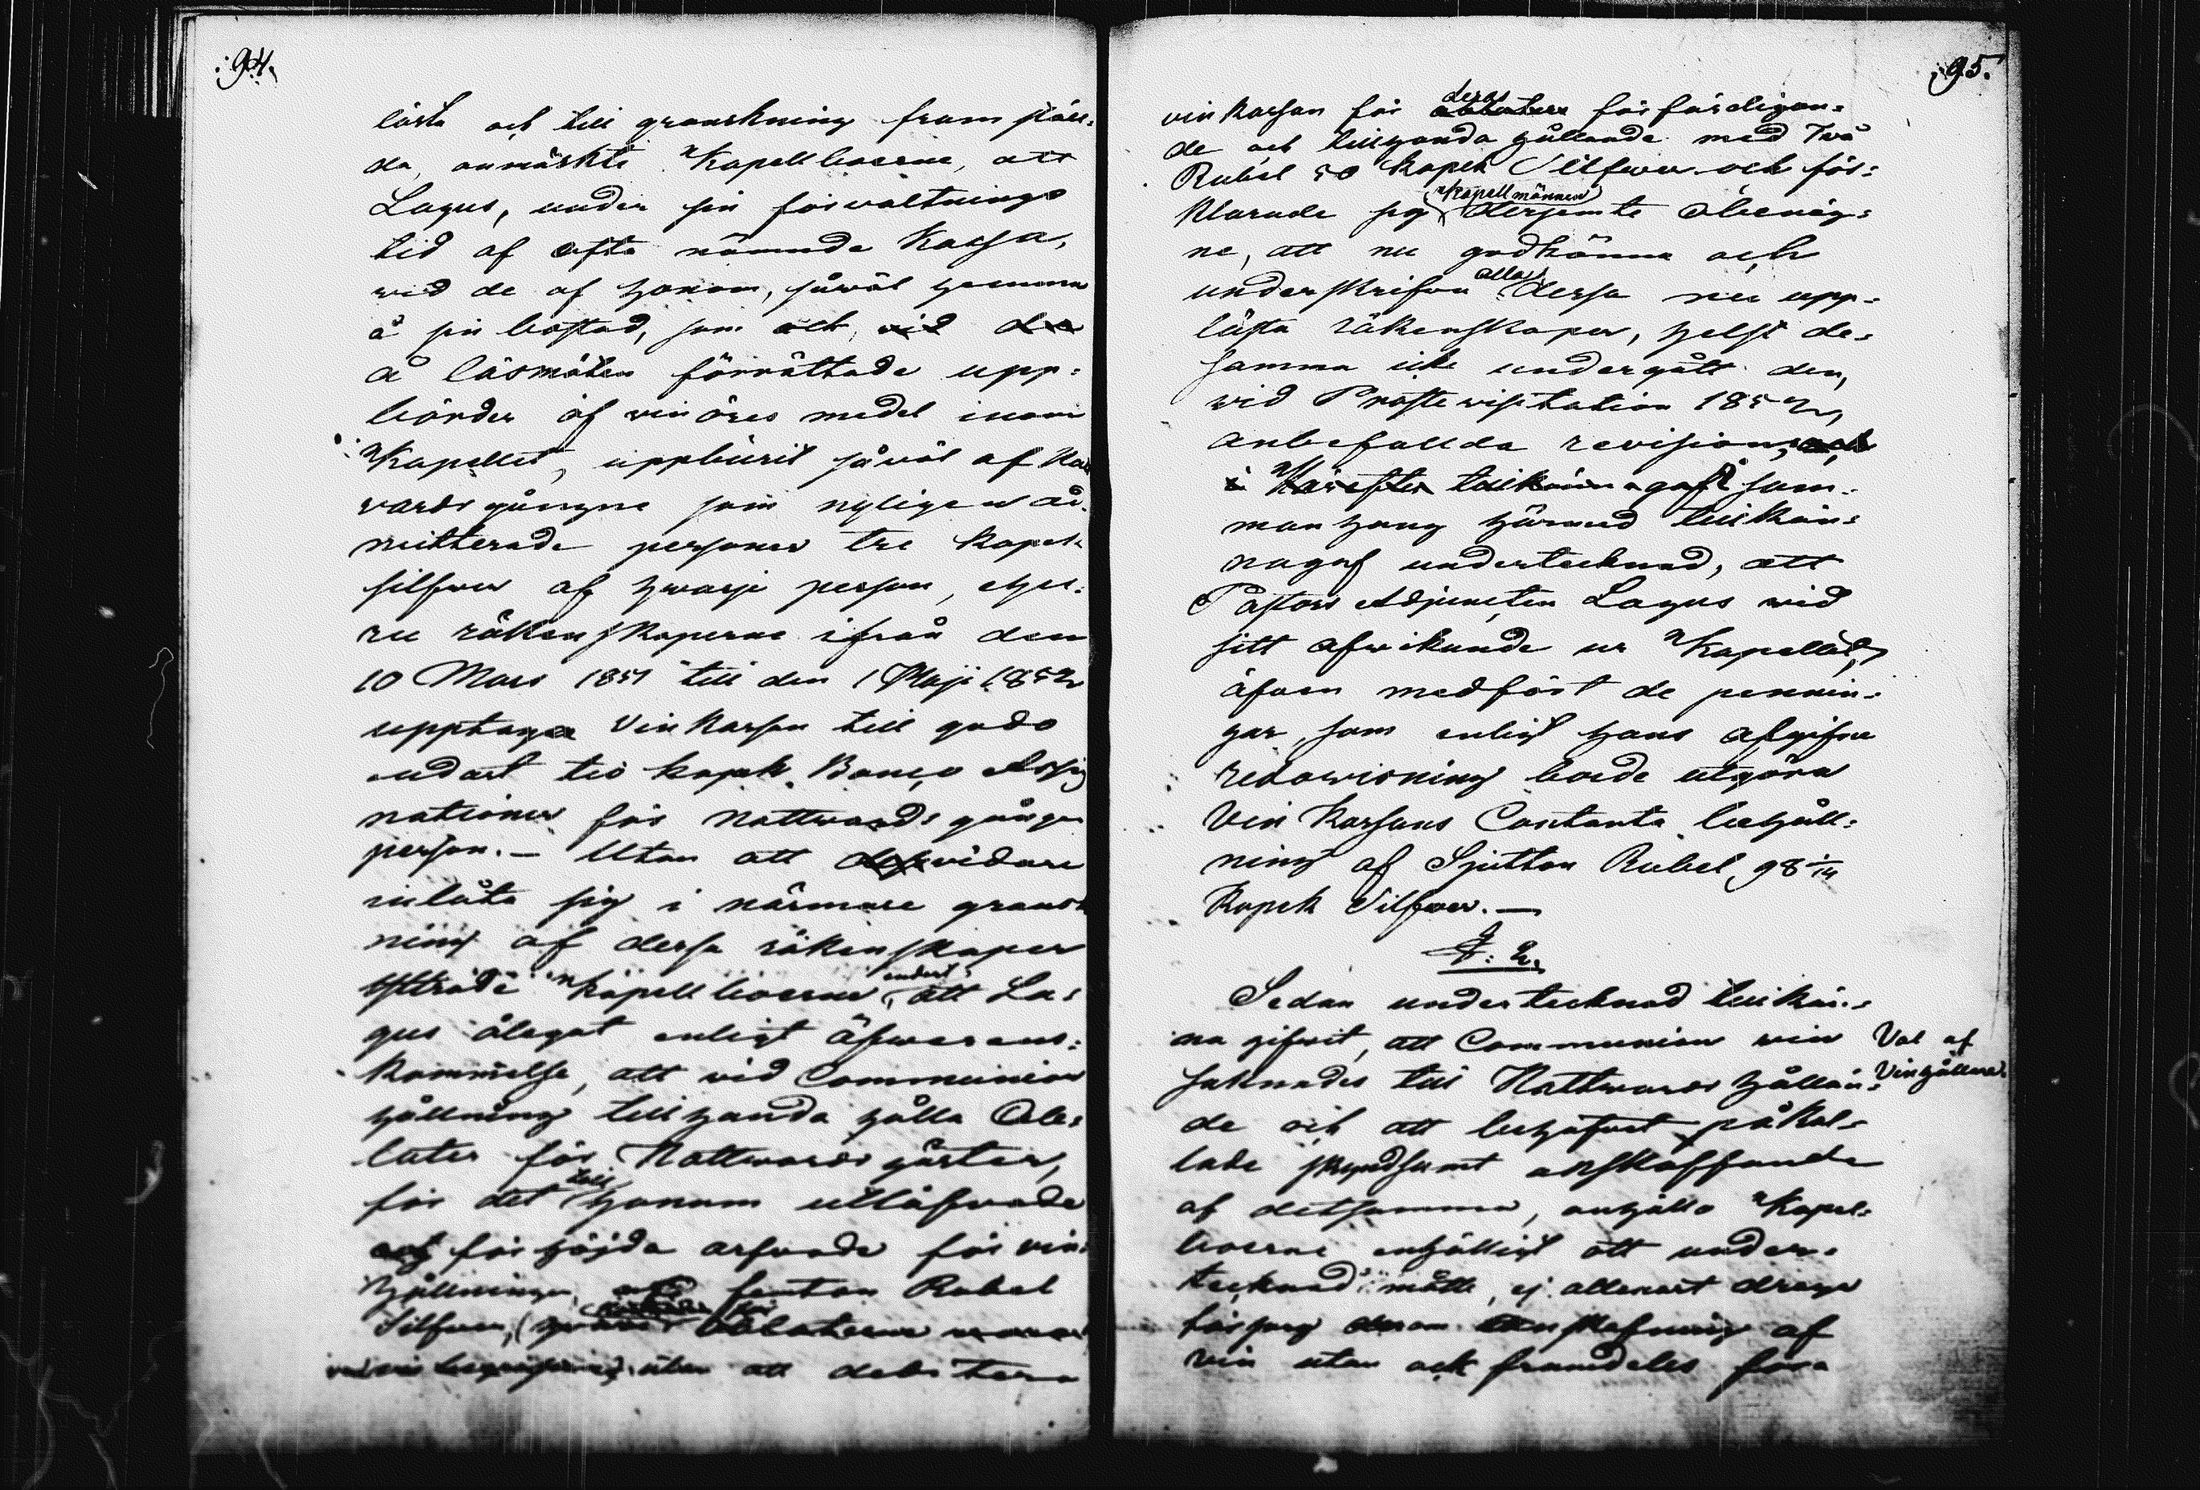 94.
lästa och till granskning framstäl=
da, anmärkte Kapellboerne, att
Lagus, under sin förvaltnings
tid af ofta nämnde Kassa,
wid de af honom, såwäl hemma
å sin bostad, som och wid de
å läsmöten förrättade upp=
börder af vinöres medel inom
Kapellet, uppburit såwäl af Natt
vards gångne som nyligen ad=
mitterade personer tre kopek
silfwer af hwarje person, ehu=
ru räkenskaperne ifrån den
10 Mars 1851 till den 1 Maji 1852
upptaga Vin Kassan till godo
endast tio kopek Banco Assig
nationer för nattwards gången
person. – Utan att widare
inlåta sig i närmare gransk
ning af dessa räkenskaper
Kapellboerne endast att La=
gus ålegat enligt öfwerens=
kommelse, att vid Communion
hållning tillhanda hålla Obla=
ter för Nattwards gäster,
för det till honom utlofwade
och förhöjda arfvode för vin=
hållningen, femton Rubel
Silfwer, oblaterne
utan att debitera
95.
vinkassan för deras förfärdigan=
de och tillhanda hållande med Två
Rubel 50 kopek Silfwer och för=
klarade sig Kapellmännen derjemte obenäg=
ne, att nu godkänna och
underskrifwa alla dessa nu upp=
lästa räkenskaper, helst de=
samma icke undergått den,
wid Prostevisitation 1852,
anbefallda revision, och
i Härefter tillkännagaf I sam=
manhang härmed tillkän=
nagaf undertecknad, att
Pastors Adjuncten Lagus wid
sitt afwikande ur Kapellet,
äfwen medfört de pennin=
gar, som enligt hans afgifne
redowisning borde utgöra
Vin Kassans Contanta behåll=
ning af Sjutton Rubel 98
Kopek Silfwer. —
§: 2.
Sedan undertecknad tillkän=
na gifwit, att Communion win
saknades till Nattwards hållan=
de och att behofwet påkal=
lade skyndsamt anskaffande
af detsamma, anhöllo Kapel=
boerne enhälligt att under=
tecknad måtte, ej allenast draga
försorg om anskaffning af
vin utan ock framdeles fora
Val af
Vinhållare.